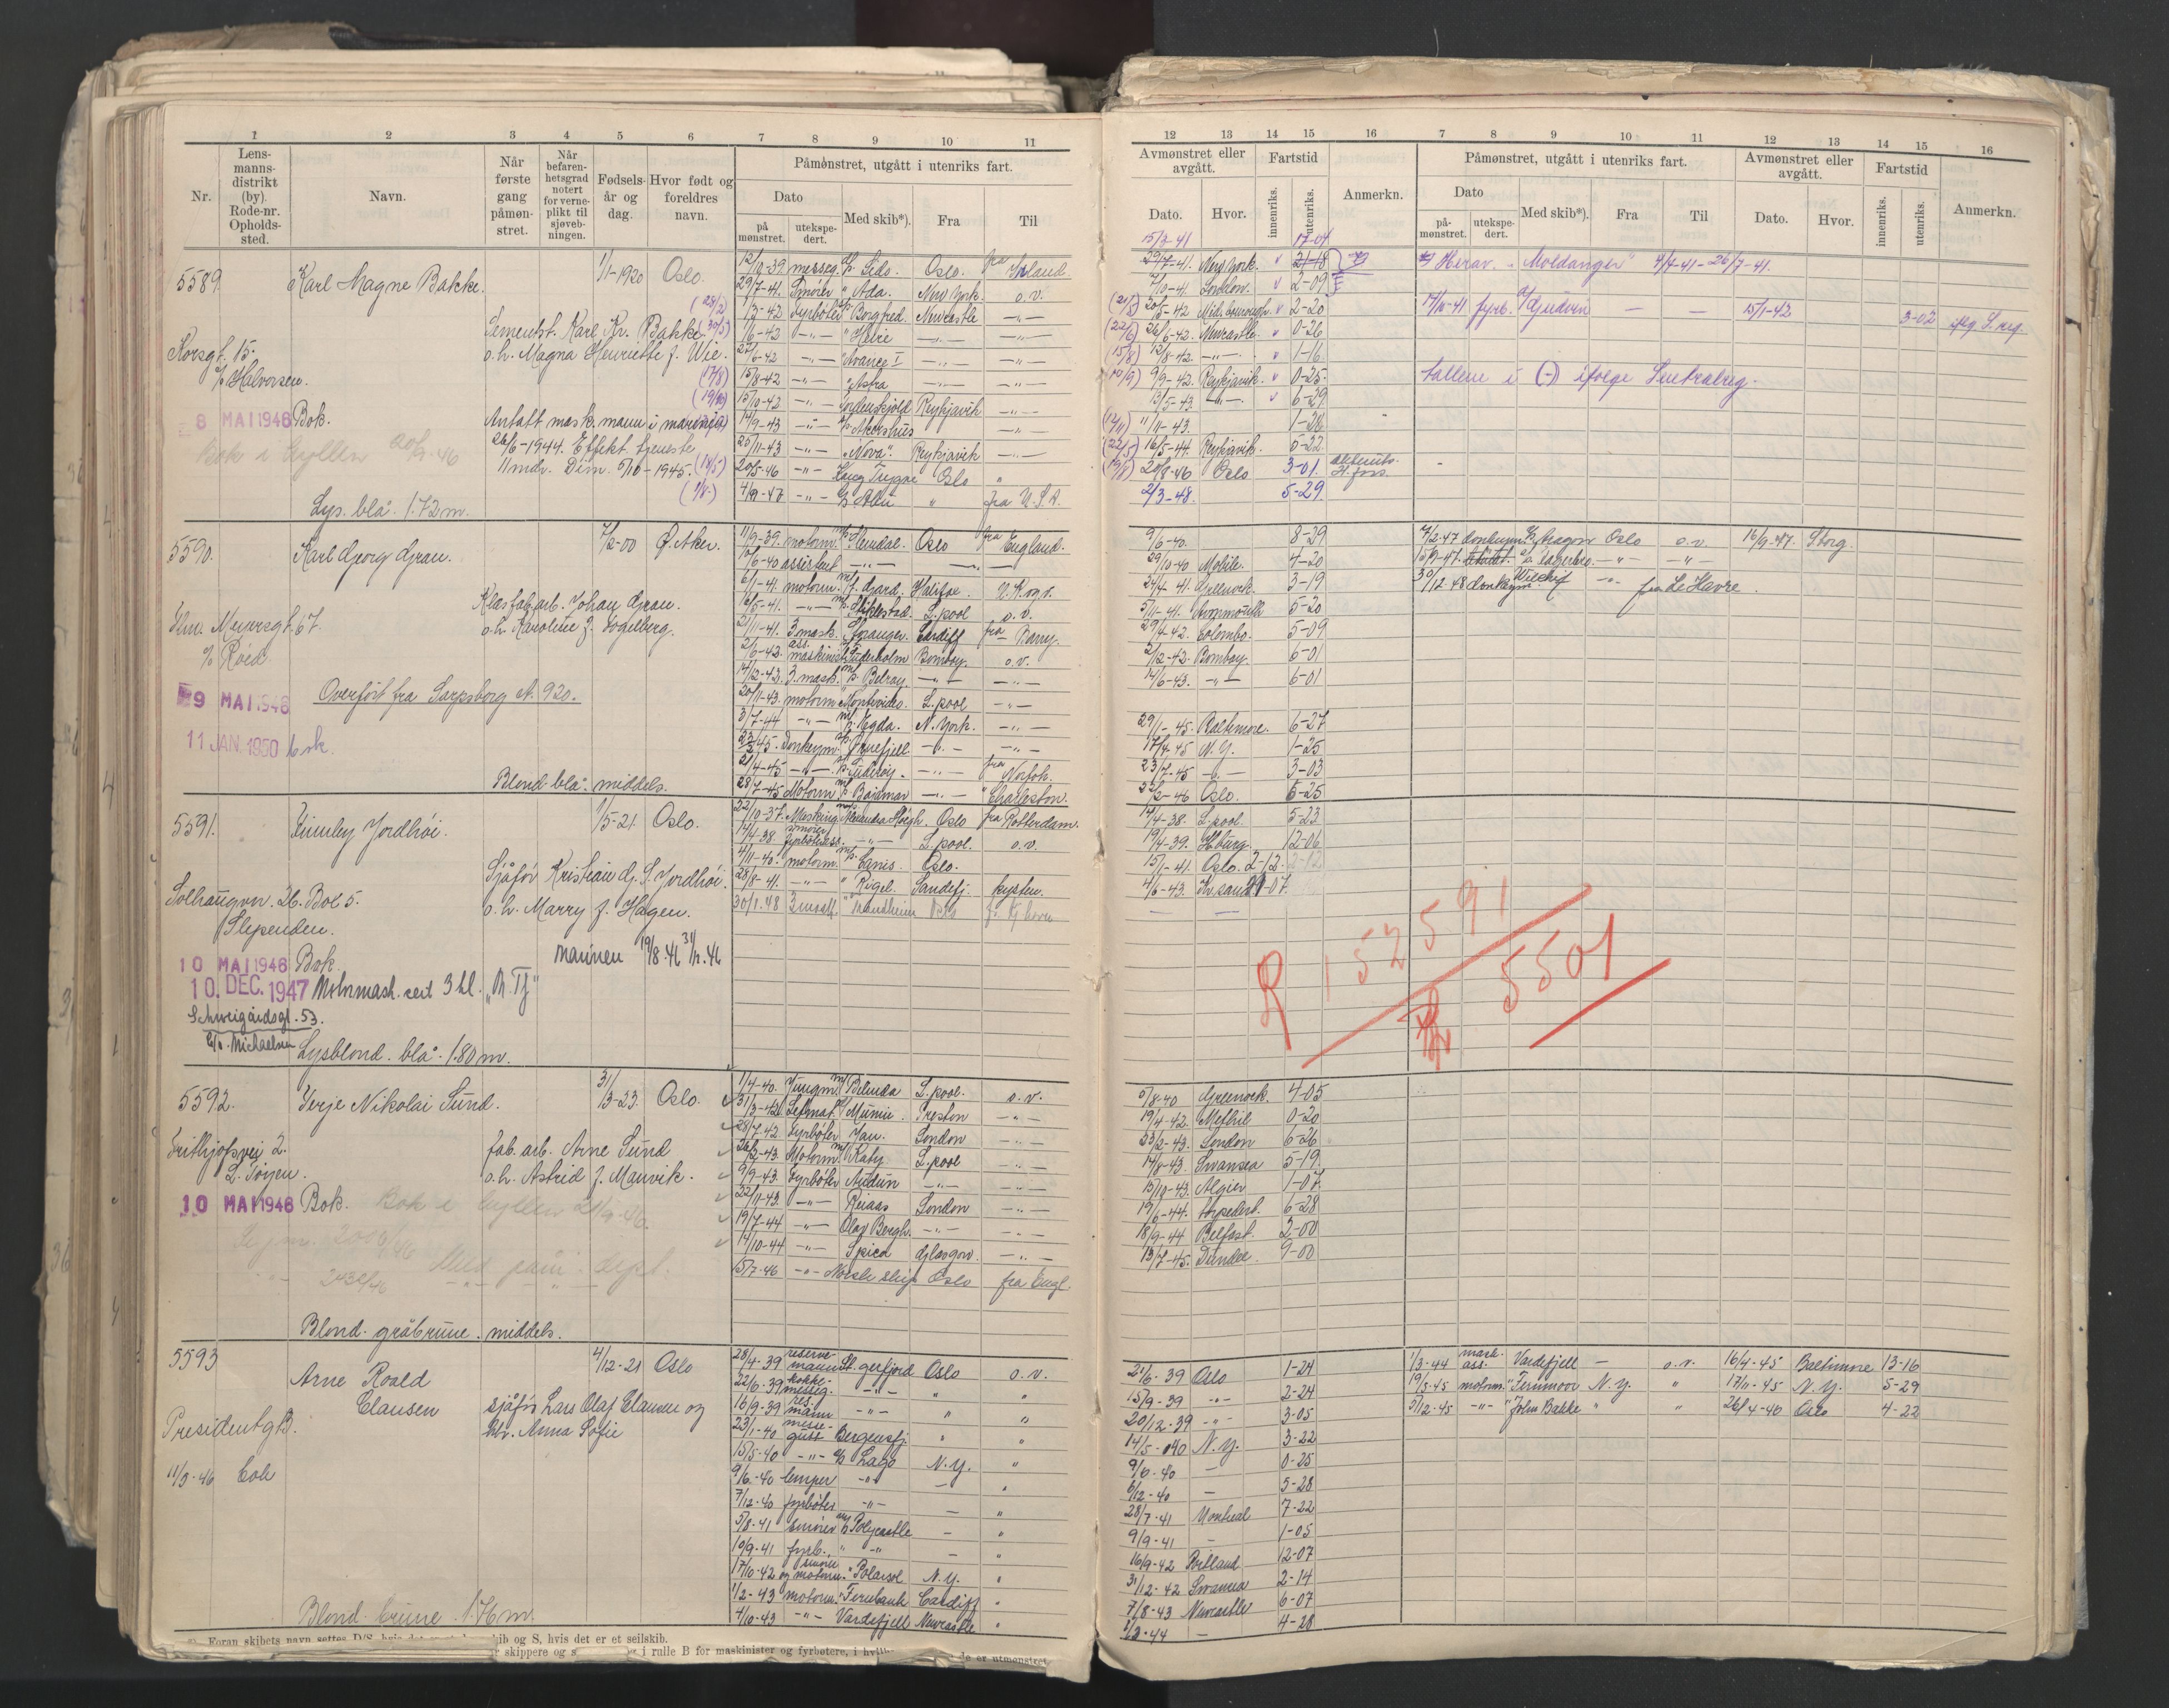 1 2 3 4 5 6 7 8 9 10 11
Nr. Lens-manns-distrikt (by). Rode-nr. Opholds-sted. Navn. Når første gang påmøn-stret. Når befaren-hetsgrad notert for verne-plikt til sjøveb-ningen. Fødsels-år og dag. Hvor født og foreldres navn. Påmønstret, utgått i utenriks fart.
Dato
på mønstret. utekspe-dert. Med skib*). Fra Til
5589. Karl Magne Bakke. 1/1-1920 Oslo. 12/10-39. messeg. Lido. Oslo. fra Irland.
29/7-41. Smører " Ada. New York. o.v.
1/3-42 Fyrbøter Borgfred. Newcastle —"—
Sementst. Karl Kr. Bakke 1/6-42 —"— " Heire —"— —"—
Korsgt. 15. o.h. Magna Henriette f. Wie. 27/6-42 —"— " Avance I —"— —"—
% Halvorsen. (17/8) 15/8-42 —"— " Astra —"— —"—
15/10-42 —"— Reykjavik —"—
8 MAI 1946 Bok. Ansatt mask.mann i marinen 14/9-43 —"— Akershus —"—
Bok i hyllen 26/6-1944. Effekt. tjeneste 25/11-43 —"— "Nova". Reykjavik —"—
11 mdr. Dim. 5/10-1945. (14/5) 20/5-46 —"— Kong Trygve Oslo "
Lys. blå. 1.72 m. 4/9-47 —"— " fra U.S.A.
5590. Karl Georg Grau. 7/2-00 Ø. Aker. 11/9-39. motorm. Hemdal. Oslo fra England.
10/6-40 assistent —"— —"—
6/1-41. motorm. Halifax.
Klesfab.arb. Johan Grau. 16/5-41. —"— Stiklestad. L.pool o.v.
Thv. Meyersgt. 67. o.h. Karoline f. Fogelberg. 21/11-41. 3 mask. Spanger. Cardiff fra Barry.
% Roed 2/6-42. ass. maskinist Suderholm Bombay. o.v.
14/12-42. 3. mask. Belray. —"— —"—
9 MAI 1946 Overført fra Sarpsborg A. 920. 20/11-43. motorm. Montevideo. L.pool —"—
3/7-44 —"— Vegda. N. York. —"—
11 JAN. 1950 bok. 23/2-45. Donkeym. Ørnefjell. —"— —"—
21/4-45 —"— Suderøy. —"— fra Norfolk.
Blond. blå. middels. 28/7-45 Motorm. Bajamar —"— " Charleston.
5591. Kinnley Jordhøi. 1/5-21. Oslo. 22/10-37. Oslo fra Rotterdam.
14/4-38. smører fyrbøterass. —"— L.pool. o.v.
4/11-40. motorm. Canis. Oslo.
Sjåfør Kristian G. S. Jordhøi. 28/8-41. —"— " Rigel. Sandefj. kysten.
Solhaugvn. 26. Bol 5. o.h. Marry f. Hagen. 30/1.48 " Mandheim Oslo
Slependen.
10 MAI 1946 Bok. marinen 19/8.46 31/12.46
10. DEC. 1947 Motormask. sert 3 kl. "M. Tj"
Schweigaardsgt. 53.
c/o. Michaelsen
Lysblond. blå. 1.80 m.
5592. Terje Nikolai Sund. 31/3-23. Oslo. 1/4-40. Jungm. Belinda L.pool. o.v.
31/3-42 Lettmat. Munin. Preston —"—
28/7-42 Fyrbøter Jan. London —"—
Fritjofsvei 2. fab.arb. Arne Sund 26/2-43. Motorm. Katy L.pool —"—
L. Tøyen. o.h. Astrid f. Mauvik. 9/9-43. Fyrbøter Audun —"— —"—
10 MAI 1946 Bok. Bok i hyllen 21/9-46. 22/11-43. —"— Reiaas London —"—
19/7-44 —"— Olav Bergh. —"— —"—
14/10-44 —"— Spica Glasgow. —"—
15/7-46 —"— Norsk skip Oslo fra Engl.
Blond. gråbrune. middels.
5593 Arne Roald Clausen 4/12-21 Oslo 28/4-39 reserve-mann St. gerfjord Oslo o.v.
22/6-39 kokke-messeg. —"— " "
sjåfør Lars Olaf Clausen og 16/9-39 res. mann —"— " "
Presidentgt. hr. Anna Sofie 23/1-40 messe-gutt Bergensfj. " "
15/5-40 —"— Lago N.Y. "
11/3-46 bok 9/6-40 lemper —"— — "
7/12-40 fyrbøter —"— — "
5/8-41 smører Polycastle — "
10/9-41 fyrb. " —"— — "
17/10-42 smører og motorm. " Polarsol N.Y. "
1/2-43 motorm. " Fernbank Cardiff "
Blond. brune. 1.76 m. 4/10-43 —"— Vardefjell Newcastle "
Foran skibets navn settes D/S, hvis det er et skib og S, hvis det er et seilskib.
skippere og s i rulle B for maskinister og fyrbøtere, i de er utmønstret
12 13 14 15 16 7 8 9 10 11 12 13 14 15 16
Avmønstret eller avgått. Fartstid Anmerkn. Påmønstret, utgått i utenriks fart. Avmønstret eller avgått. Fartstid Anmerkn.
Dato. Hvor. innenriks. utenriks. Dato på-mønstret. utekspe-dert. Med skib*). Fra Til Dato. Hvor. innenriks. utenriks.
15/3-41 17-04
29/7-41. New York. 21-18 Herav. "Moldanger" 4/4-41-26/7-41.
7/10-41 London. 2-09
(21/5) 20/5-42 Middlesbrough. 2-20 14/10-41 fyrb. Gudvin — — 15/1-42 3-02 iflg S. reg
(22/6) 26/6-42. Newcastle. 0-26
(15/8) 12/8-42. —"— 1-16
(10/9) 9/9-42. Reykjavik. 0-25 tallene i (-) ifølge Sentralreg.
13/5-43. —"—. 6-29
(12/11) 11/11-43. 1-28
(22/5) 16/5-44. Reykjavik. 5-22
20/8-46 Oslo 3-01.
2/3-48. 5-29
9/6-40. 8-29 Aragon Oslo o.v. 16/9-47. Sborg.
29/10-40 Mobile. 4-20 —"— —"—
24/4-41. Greenock. 3-19 30/12-48 donkeym. fra Le Havre.
5/11-41. Avonmouth 5-20
29/4-42. Colombo. 5-09
2/12-42. Bombay. 6-01
14/6-43. —"— 6-01
29/1-45. Baltimore. 6-27
17/4-45 N.Y. 1-25
23/7-45 —"— 3-03
22/2-46 Oslo. 6-25
14/4-38. L.pool. 5-23
19/4-39. Hburg. 12-06
15/1-41. Oslo. 2-12.
4/6-43. Kr.sand 21-07.
R 152591
R 5501
5/8-40 Greenock. 4-05
19/4-42. Methil. 0-20
23/2-43. London 6-26
14/8-43 Swansea 5-19
15/10-43. Algier 1-07.
19/6-44. torpedert. 6-28
18/9-44 Belfast. 2-00
13/7-45. Dundee. 9-00
21/6-39 Oslo 1-24 1/3-44 mask. ass. Vardefjell — o.v. 16/4-45 Baltimore 13-16
15/9-39 —"— 2-24 19/5-45 motorm. " Fernmoor N.Y. " 17/11-45 N.Y. 5-29
20/12-39 —"— 3-05 5/12-45 —"— " John Bakke " " 26/4-46 Oslo 4-22
14/5-40 N.Y. 3-22
9/6-40 — 0-25
6/12-40 — 5-28
28/7-41 Montreal 7-22
9/9-41 — 1-05
16/9-42 Portland 12-07
31/12-42 Swansea 2-14
7/8-43 Newcastle 6-07
1/3-44 — 4-28